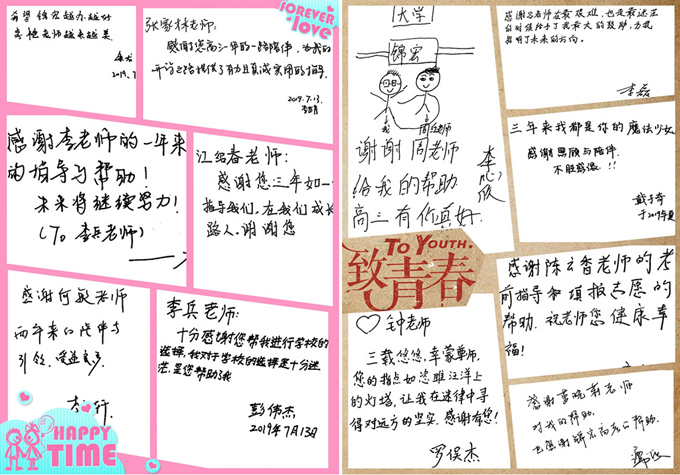 希望锦宏越办越好
高艳老师越来越美
2019.7
张家林老师:
感谢您高三一年的一路陪伴,为我的
2019.7.13
FOREVER
love
感谢李老师的一年来
的指导与帮助!
未来将继续努力!
(To 李兵老师)
江红春老师:
感谢您三年如一
指导我们。在我们成长
路人。谢谢您
感谢何敏老师
两年来的陪伴与
引领,受益良多
李兵老师:
十分感谢您帮我进行学校的
选择,我对于学校的选择是十分迷
茫,是您帮助了我
彭伟杰
2019年7月13日
HAPPY
TIME
大学
锦宏
我
周老师
谢谢周老师
给我的帮助
高三有你真好
李欣欣
的时候给予了我最大的鼓励,为我
指明了未来的方向。
李磊
三年来我都是你的魔法少女
感谢照顾与陪伴
不胜感激!!
于2019年夏
TO YOUTH.
致青春
感谢陈云香老师的考
前指导和填报志愿的
帮助。祝老师您健康幸
福!
钟老师
三载悠悠,幸蒙单师,
您的指点如恣睢汪洋上
的灯塔,让我在迷律中寻
得对远方的坚实。感谢有您!
罗保杰
对我的帮助